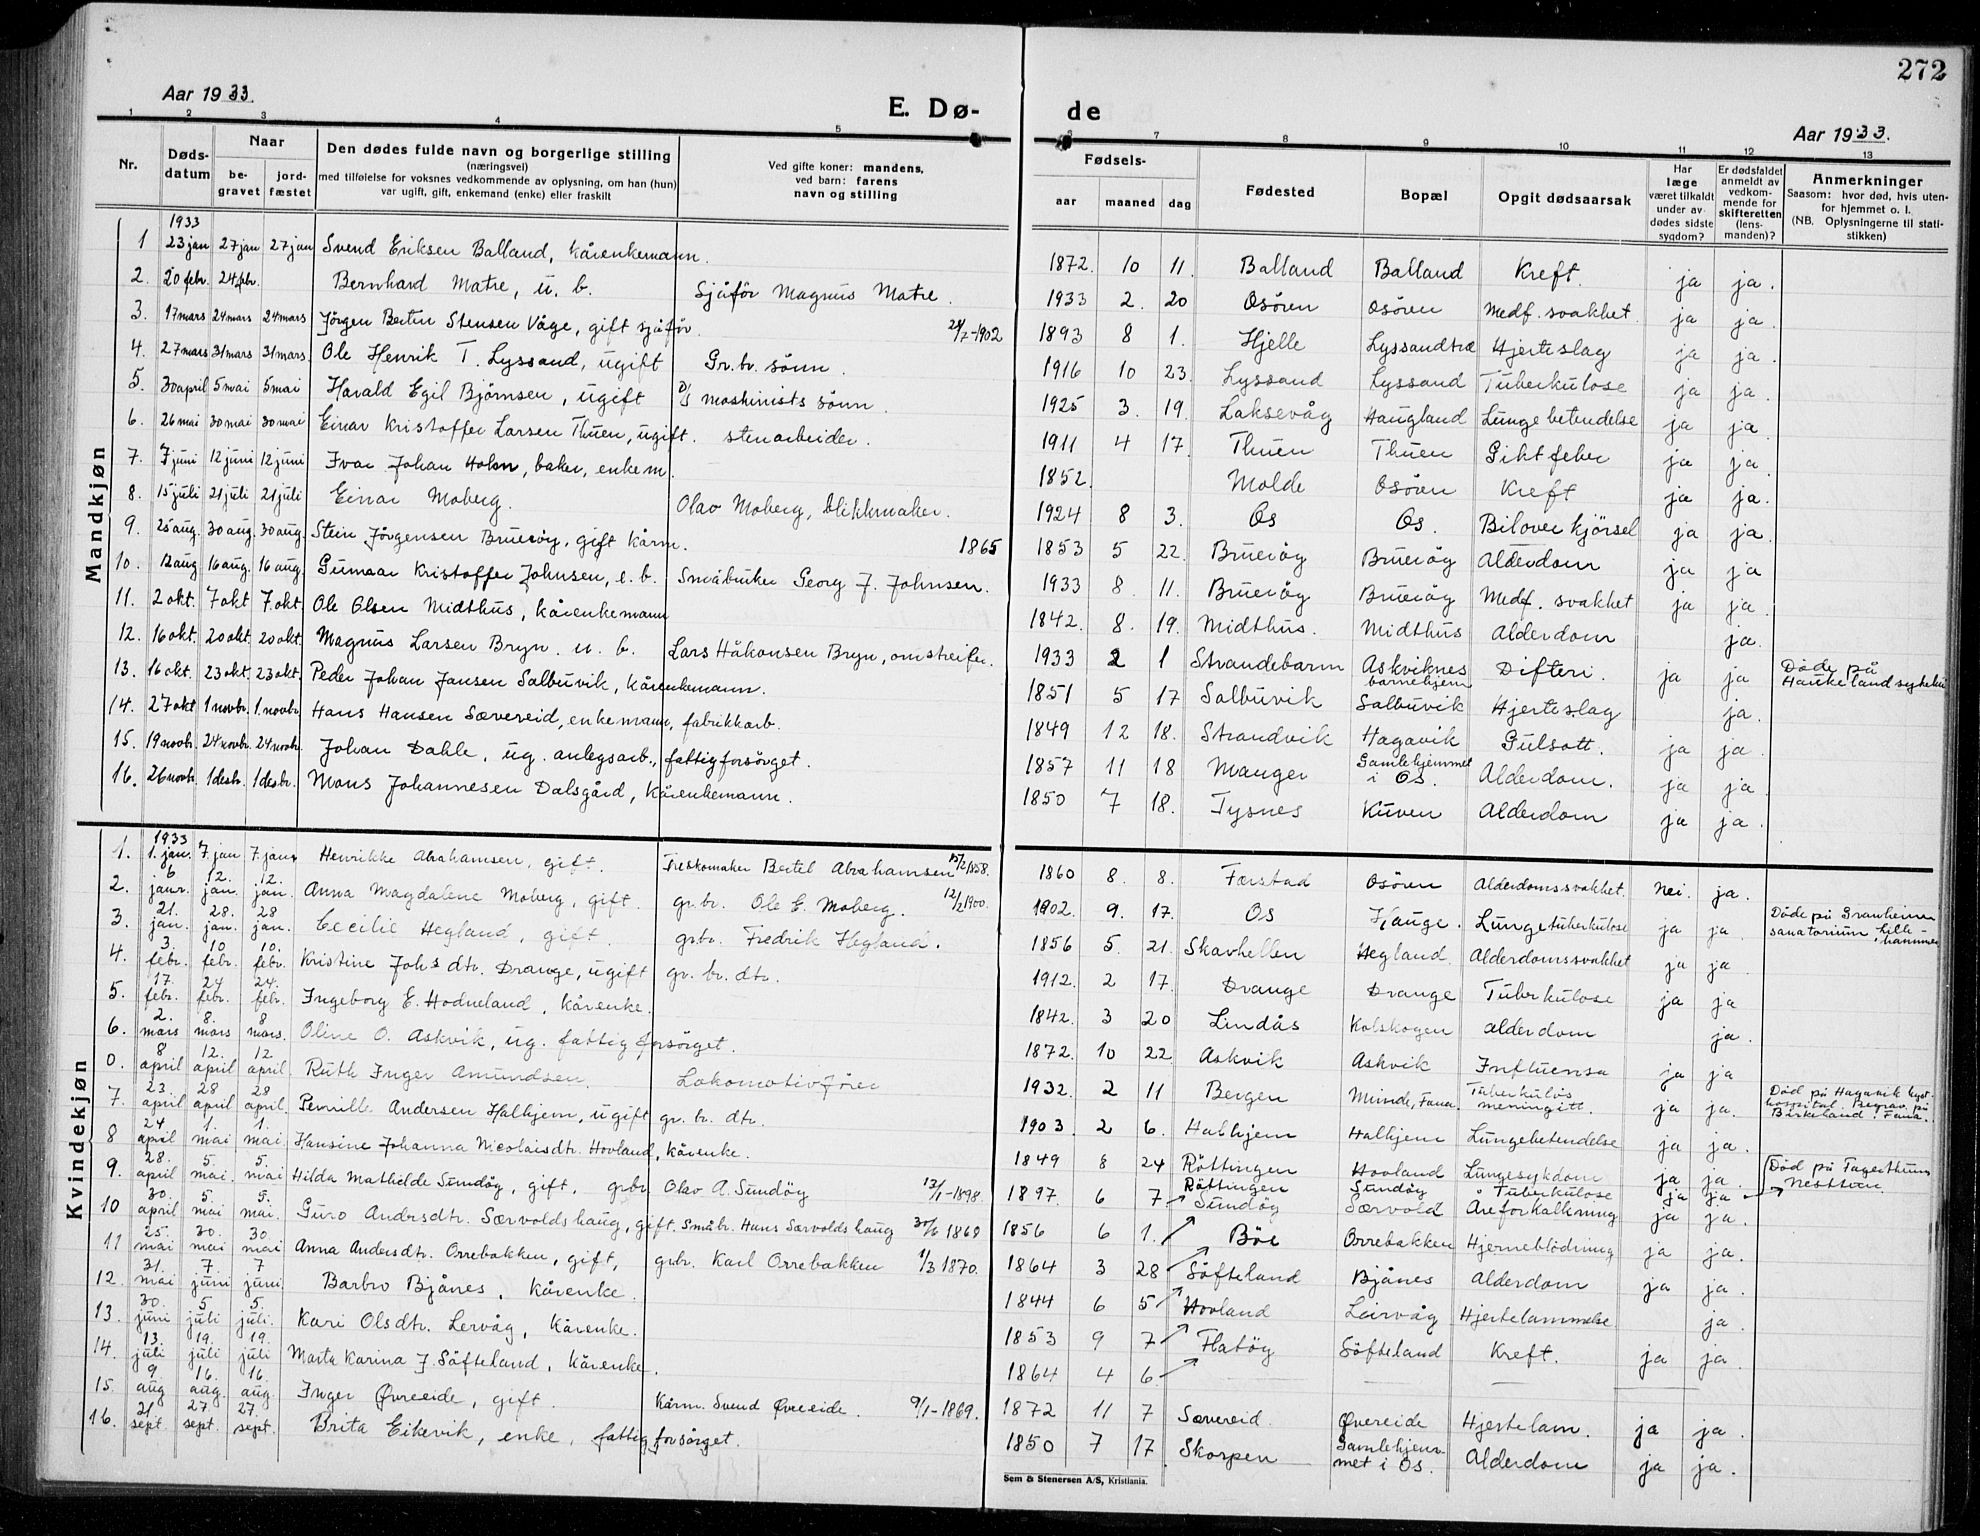 272
Aar 1933.
E. Dø-
de
Aar 1933.
1 2 3 4 5 6 7 8 9 10 11 12 13
Nr.
Døds-datum
Naar
be-gravet
jord-fæstet
Den dødes fulde navn og borgerlige stilling
(næringsvei)
med tilføielse for voksnes vedkommende av oplysning, om han (hun)
var ugift, gift, enkemand (enke) eller fraskilt
Ved gifte koner: mandens,
ved barn: farens
navn og stilling
Fødsels-
aar maaned dag
Fødested
Bopæl
Opgit dødsaarsak
Har læge været tilkaldt under av-dødes sidste sygdom?
Er dødsfaldet anmeldt av vedkom-mende for skifteretten (lens-manden)?
Anmerkninger
Saasom: hvor død, hvis uten-
for hjemmet o. l.
(NB. Oplysningerne til stati-
stikken)
Mandkjøn
1933
1 23 jan 27 jan 27 jan Svend Eriksen Balland, kårenkemann. 1872. 10 11. Balland Balland Kreft. ja ja.
2. 20 febr. 24 febr. Bernhard Matre, u. b. Sjåfør Magnus Matre. 1933 2. 20 Osøren Osøren Medf. svakhet. ja ja.
3. 17 mars 24 mars 24 mars Jørgen Bertin Stensen Våge, gift sjåfør. 24/7-1902 1893 8 1. Hjelle Lyssandtræ Hjerteslag ja ja.
4. 27 mars 31 mars 31 mars. Ole Henrik T. Lyssand, ugift Gr.br. sønn. 1916 10 23. Lyssand Lyssand Tuberkulose ja ja.
5. 30 april 5 mai 5 mai Harald Egil Bjørnsen, ugift D/s maskinists sønn. 1925 3. 19. Laksevåg Haugland Lungebetendelse ja ja.
6. 26 mai 30 mai 30 mai Einar Kristoffer Larsen Thuen, ugift. stenarbeider. 1911 4 17. Thuen Thuen Giktfeber ja ja.
7. 7 juni 12 juni 12 juni Ivar Johan Holm, baker, enkem. 1852. Molde Osøren Kreft ja ja.
8. 15 juli 21 juli 21 juli Einar Moberg. Olav Moberg, blikkmaker. 1924 8 3. Os Os. Biloverkjørsel ja ja.
9. 25 aug. 30 aug. 30 aug. Stein Jørgensen Bruerøy, gift kårm. 1865 1853 5 22. Bruerøy Bruerøy Alderdom ja ja
10. 12 aug 16 aug. 16 aug. Gunnar Kristoffer Johnsen, e. b. Småbruker Georg J. Johnsen. 1933 8. 11. Bruerøy Bruerøy Medf. svakhet ja ja.
11. 2 okt. 7 okt 7 okt. Ole Olsen Midthus, kårenkemann 1842. 8. 19. Midthus. Midthus Alderdom ja.
12. 16 okt. 20 okt. 20 okt. Magnus Larsen Bryn. u. b. Lars Håkonsen Bryn, omstreifer. 1933 2 1 Strandebarm Askviknes barnehjem Difteri. ja ja Døde på Haukeland sykehus
13. 16 okt. 23 okt. 23 okt. Peder Johan Jansen Salbuvik, kårenkemann. 1851 5 17 Salbuvik Salbuvik Hjerteslag ja.
14. 27 okt 1 novbr. 1. novbr. Hans Hansen Sævereid, enkemann, fabrikkarb. 1849 12 18. Strandvik Hagavik Gulsott. ja ja.
15. 19 novbr. 24 novbr. 24 novbr. Johan Dahle, ug. anlegsarb., fattigforsørget. 1857 11 18 Manger Gamlehjemmet i Os. Alderdom. ja ja.
16. 26 novbr. 1 desbr. 1 desbr. Mons Johannesen Dalsgård, kårenkemann. 1850 7 18. Tysnes Kuven Alderdom ja ja.
Kvindekjøn
1933
1. 1. jan. 7. jan 7. jan. Henrikke Abrahamsen, gift. Treskomaker Bertel Abrahamsen 15/2 1858. 1860 8. 8. Førstad Osøren Alderdomssvakhet. nei. ja.
2. 6 janr. 12. jan. 12. jan. Anna Magdalene Moberg, gift. gr.br. Ole E. Moberg. 12/2 1900. 1902. 9. 17. Os Hauge. Lungetuberkulose ja ja Døde på Granheimen sanatorium, Lille-hammer
3. 21. jan. 28. jan. 28 jan. Cecilie Hegland, gift. grbr. Fredrik Hegland. 1856 5. 21. Skavhellen Hegland. Alderdomssvakhet ja ja
4. 3. febr. 10 febr. 10. febr. Kristine Johs dtr. Drange, ugift gr. br. dtr. 1912. 2 17. Drange Drange Tuberkulose ja ja
5. 17. febr. 24 febr. 24. febr. Ingeborg E. Hodneland, kårenke. 1842. 3 20 Lindås Kolskogen alderdom ja.
6. 2. mars 8. mars 8 mars. Oline O. Askvik, ug. fattigforsørget. 1872. 10 22 Askvik Askvik Influensa ja ja
0. 8 april 12. april 12. april Ruth Inger Amundsen Lokomotivfører 1932. 2 11 Bergen Minde, Fana. Tuberkuløs meningitt. ja ja. Død på Hagavik kyst-hospital. Begrav. på Birkeland, Fana.
7. 23. april 28 april 28 april. Pernille Andersen Halhjem, ugift gr. br. dtr. 1903. 2 6. Halhjem Halhjem Lungebetendelse ja ja.
8 24 april 1. mai 1. mai Hansine Johanna Nicolaisdtr. Hovland, kårenke. 1849 8 24 Røttingen Hovland Lungesykdom ja ja.
9. 28. april 5. mai. 5. mai Hilda Mathilde Sundøy, gift, grbr. Olav A. Sundøy 13/1-1898. 1897. 6 7 Røttingen Sundøy Sundøy Tuberkulose ja ja Død på Fagerthun, Nesttun.
10 30. april 5. mai 5. mai. Guro Andersdtr. Særvoldshaug, gift. småbr. Hans Særvoldshaug 30/6 1869 1856 6 1. Særvold Åreforkalkning ja ja.
11 25. mai 30. mai 30 mai Anna Andersdtr. Orrebakken, gift, grbr. Karl Orrebakken 1/3 1870. 1864 3 28 Bøe Orrebakken Hjerneblødning ja ja.
12. 31. mai 7. juni 7 juni. Barbro Bjånes, kårenke. 1844 6 5 Søfteland Bjånes Alderdom ja ja.
13. 30. juni 5 juli 5. juli. Kari Olsdtr. Lervåg, kårenke. 1853 9 7 Hovland Leirvåg Hjertelammelse ja.
14. 13. juli 19. juli 19. juli Marta Karina J. Søfteland, kårenke. 1864 4 6. Flatøy Søfteland Kreft. ja ja.
15. 9 aug 16. aug. 16. aug. Inger Øvreeide, gift. Kårm. Svend Øvreeide. 9/1-1869. 1872 11 7 Sævereid. Øvereide Hjertelam. ja ja.
16. 21 sept. 27 sept. 27. sept. Brita Eikevik, enke, fattigforsørget. 1850 7 17 Skorpen Gamlehjem-met i Os. Alderdom ja ja.
Sem & Stenersen A/S, Kristiania.